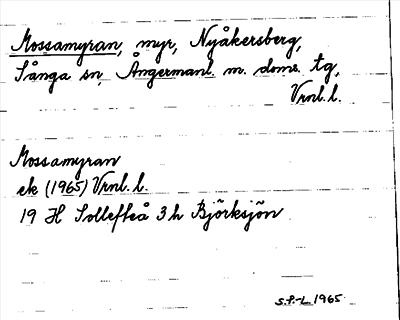 Mossamyran, myr, Nyåkersberg,
Sånga sn, Ångermanl. m. doms. tg,
Vrnl. l.
Mossamyran
ek (1965) Vrnl. l.
19 H Sollefteå 3 h Björksjön
S.P.-L 1965